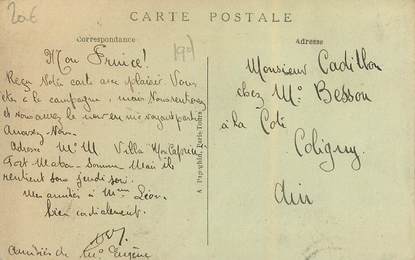 20€
CARTE POSTALE
Correspondance
Adresse
190
Mon Prince!
Reçu votre carte avec plaisir Vous
êtes à la campagne, mais
et nous avons le
Amusez-vous.
Adresse Mr M Villa Mon Caprice
Fort Mahon - Somme Mais ils
rentrent sous jeudi soir.
Mes amitiés à Mme Léon.
bien cordialement.
Amitiés de Me Eugène
A. Papeghin, Paris-Tours
Monsieur Cadillon
chez Mr Besson
à la Côte
Coligny
Ain